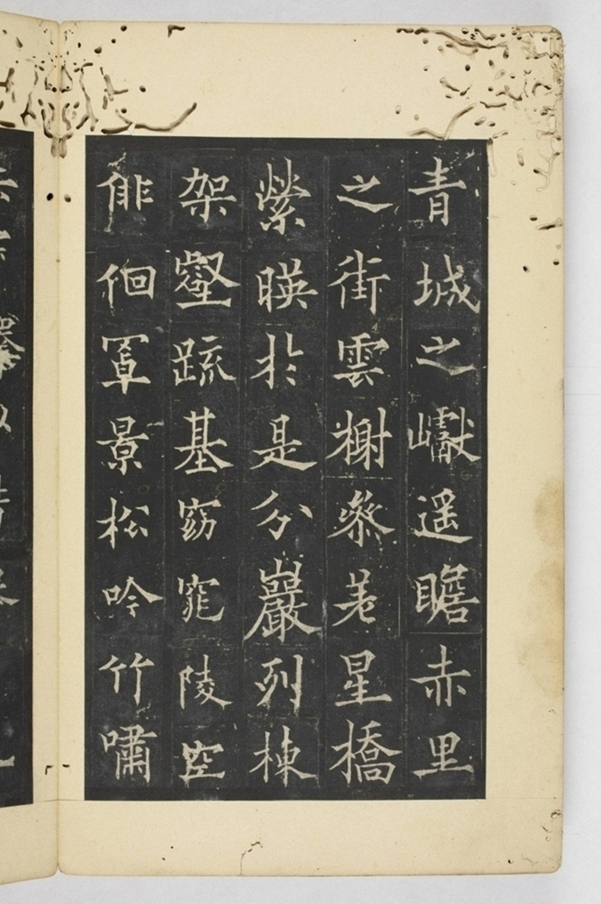 青城之巘遥瞻赤里
之街雲榭叅差星橋
縈暎於是分巖列棟
架壑疏基窈窕陵空
俳佪罩景松吟竹嘯